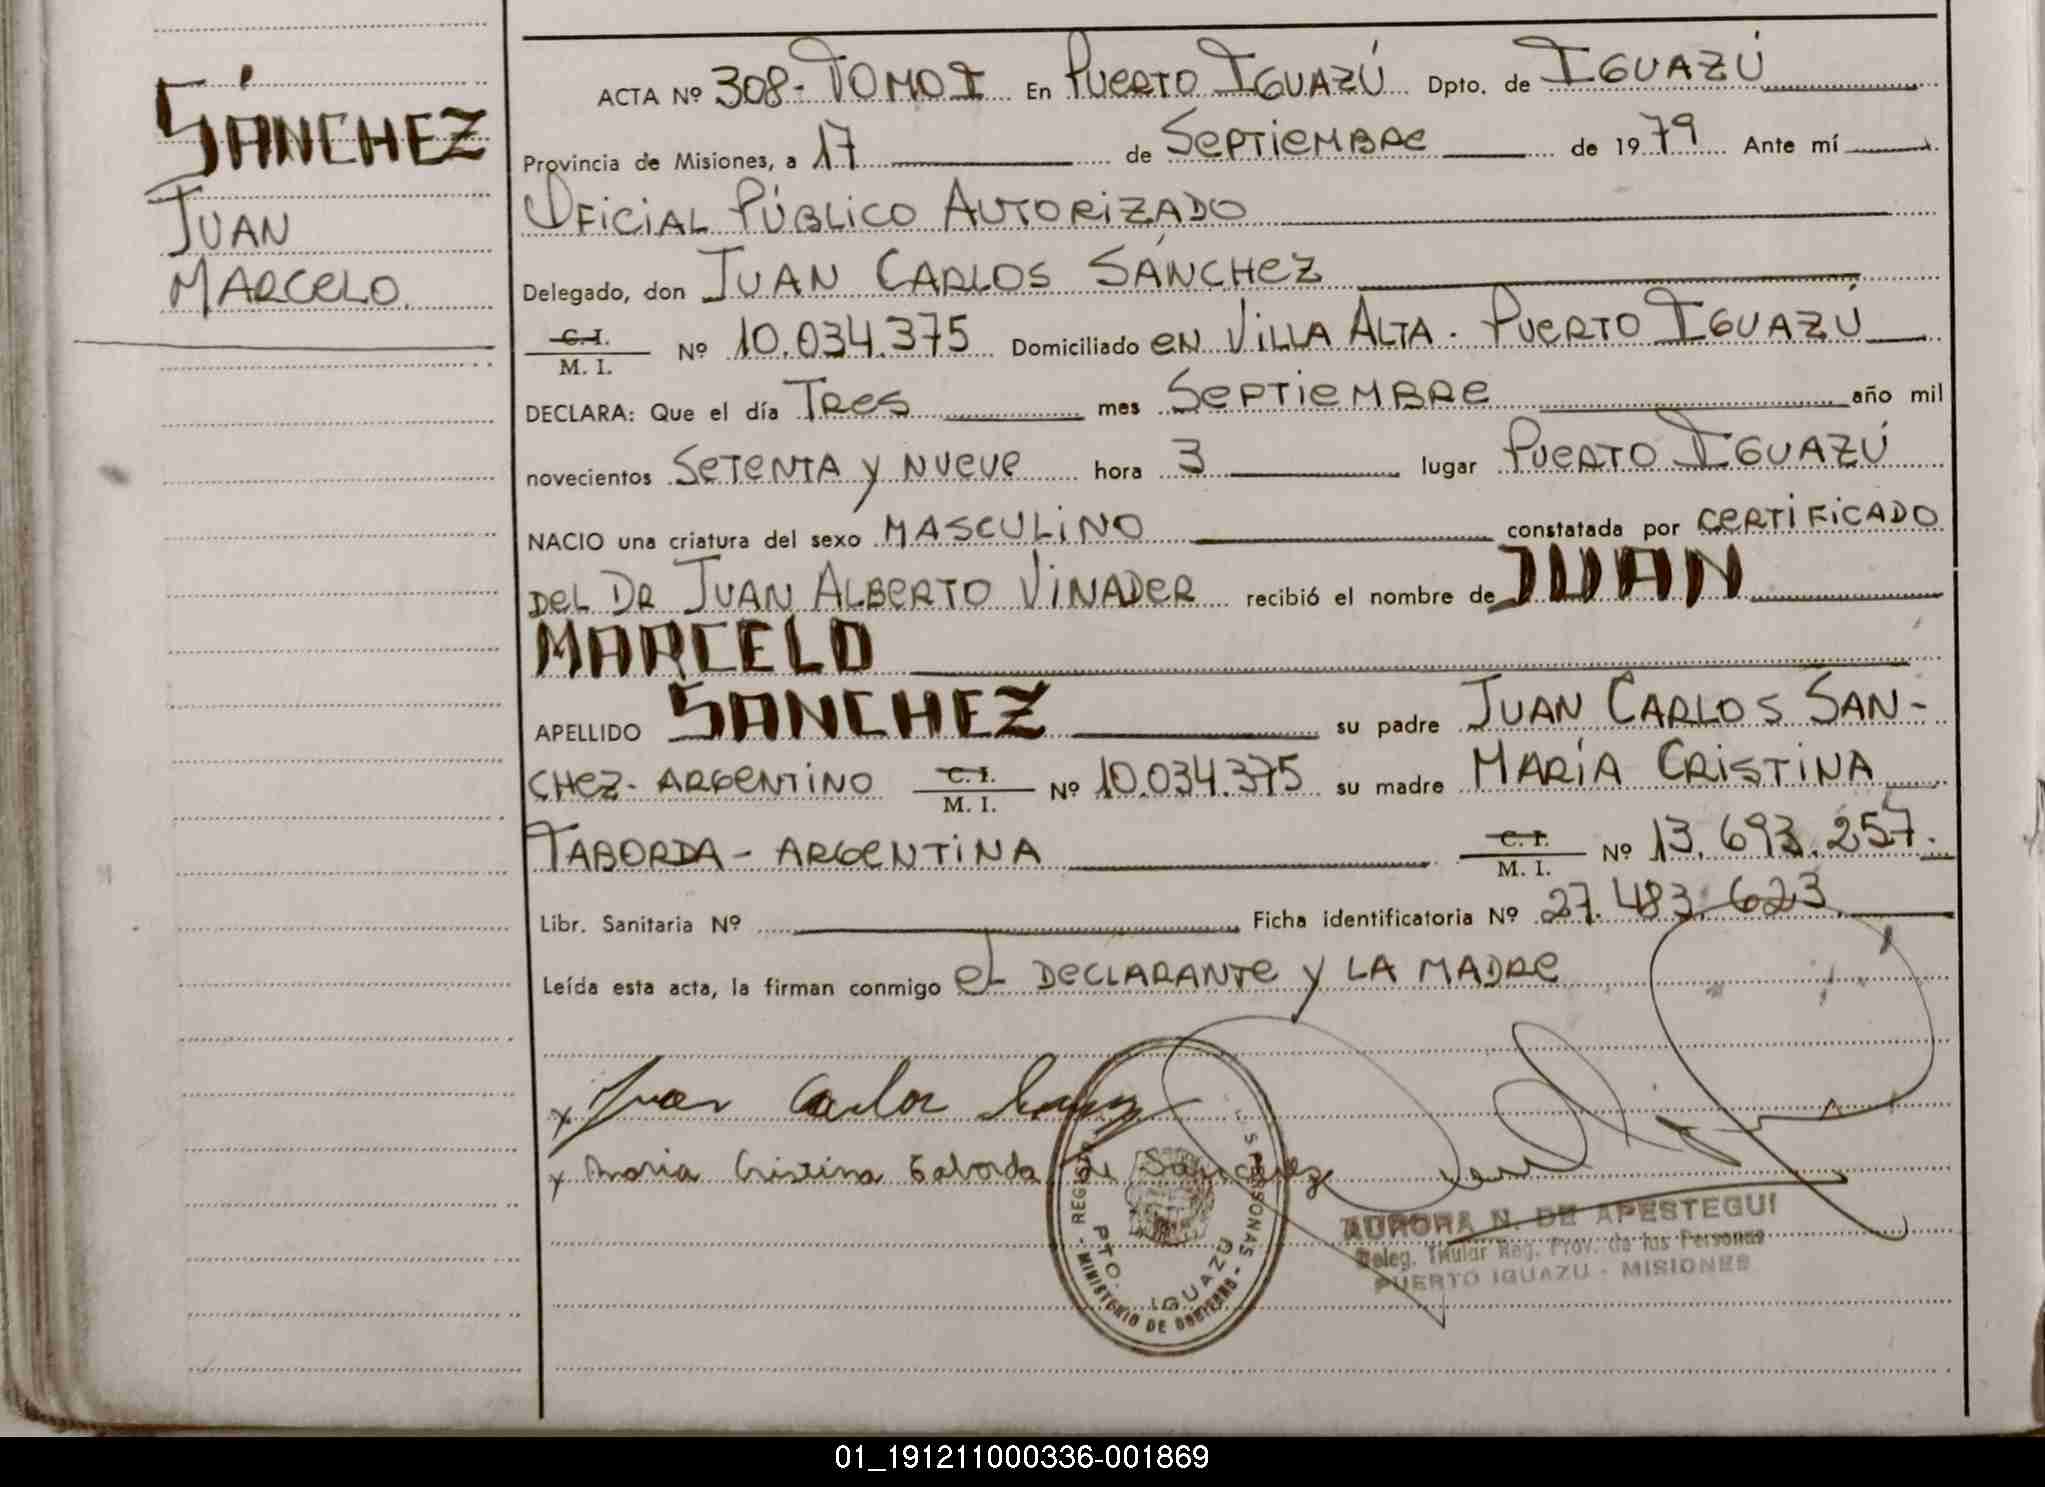 SÁNCHEZ
JUAN
MARCELO.
ACTA Nº 308-TOMO I En PUERTO IGUAZÚ Dpto. de IGUAZÚ
Provincia de Misiones, a 17 de SEPTIEMBRE de 1979 Ante mí
OFICIAL PÚBLICO AUTORIZADO
Delegado, don JUAN CARLOS SÁNCHEZ
C. I. / M. I. Nº 10.034.375 Domiciliado EN VILLA ALTA - PUERTO IGUAZÚ
DECLARA: Que el día TRES mes SEPTIEMBRE año mil
novecientos SETENTA Y NUEVE hora 3 lugar PUERTO IGUAZÚ
NACIO una criatura del sexo MASCULINO constatada por CERTIFICADO
DEL DR JUAN ALBERTO VINADER recibió el nombre de JUAN
MARCELO
APELLIDO SANCHEZ su padre JUAN CARLOS SAN-
CHEZ- ARGENTINO C. I. / M. I. Nº 10.034.375 su madre MARÍA CRISTINA
TABORDA - ARGENTINA C. I. / M. I. Nº 13.693.257.
Libr. Sanitaria Nº Ficha identificatoria Nº 27.483.623
Leída esta acta, la firman conmigo EL DECLARANTE Y LA MADRE
x Juan Carlos Sanchez
x Maria Cristina Taborda de Sanchez
PTO. IGUAZÚ
- MINISTERIO DE GOBIERNO -
AURORA N. DE APESTEGUI
Deleg. Titular Reg. Prov. de las Personas
PUERTO IGUAZU - MISIONES
01_191211000336-001869